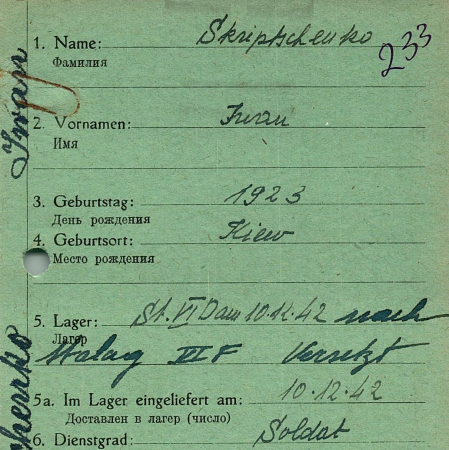 1. Name: Skriptschenko
Фамилия
233
2. Vornamen: Iwan
Имя
3. Geburtstag: 1923
День рождения
4. Geburtsort: Kiew
Место рождения
5. Lager: St. VI D am 10.12.42 nach
Лагер
Stalag III F Versetzt
5a. Im Lager eingeliefert am: 10.12.42
Доставлен в лагер (число)
6. Dienstgrad: Soldat
Iwan
chenko